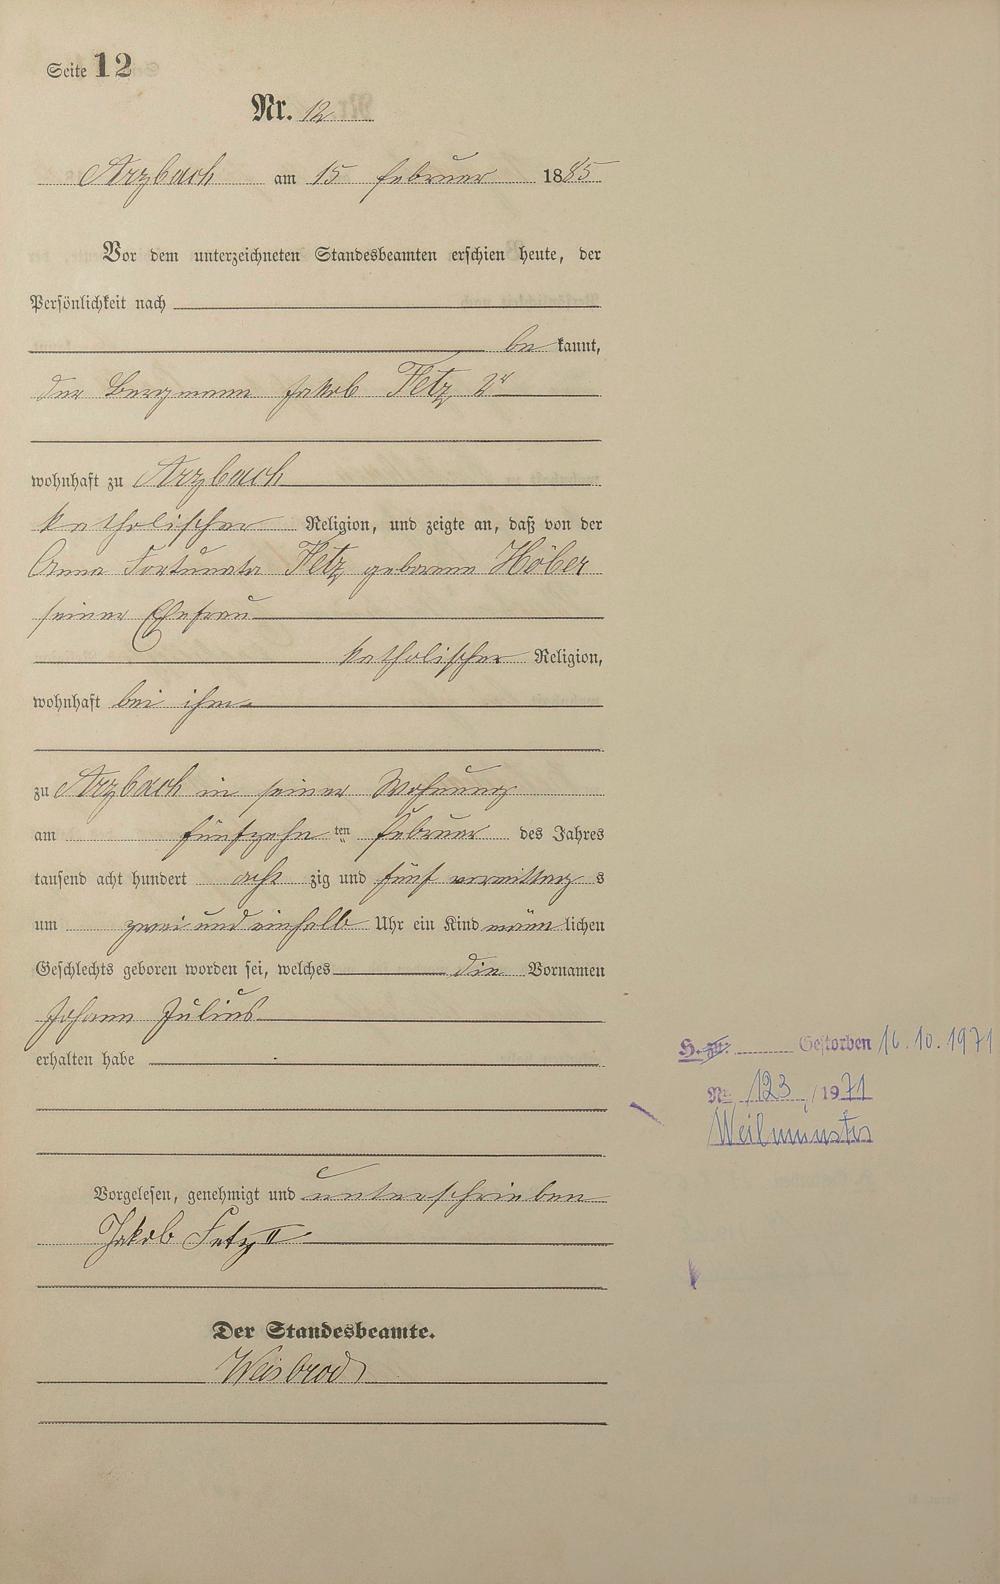 Seite 12
Nr. 12
Arzbach am 15 Februar 1885
Vor dem unterzeichneten Standesbeamten erschien heute, der
Persönlichkeit nach
be kannt,
der Bergmann Jakob Fetz 2r
wohnhaft zu Arzbach
katholischer Religion, und zeigte an, daß von der
Anna Fortunata Fetz geborene Höber
seiner Ehefrau
katholischer Religion,
wohnhaft bei ihm
zu Arzbach in seiner Wohnung
am fünfzehn ten Februar des Jahres
tausend acht hundert acht zig und fünf vormittag s
um zwei und einhalb Uhr ein Kind männ lichen
Geschlechts geboren worden sei, welches die Vornamen
Johann Julius
erhalten habe
H. Gestorben 16.10.1971
Nr. 123 / 1971
Weilmünster
Vorgelesen, genehmigt und unterschrieben
Jakob Fetz II
Der Standesbeamte.
Weisbrod